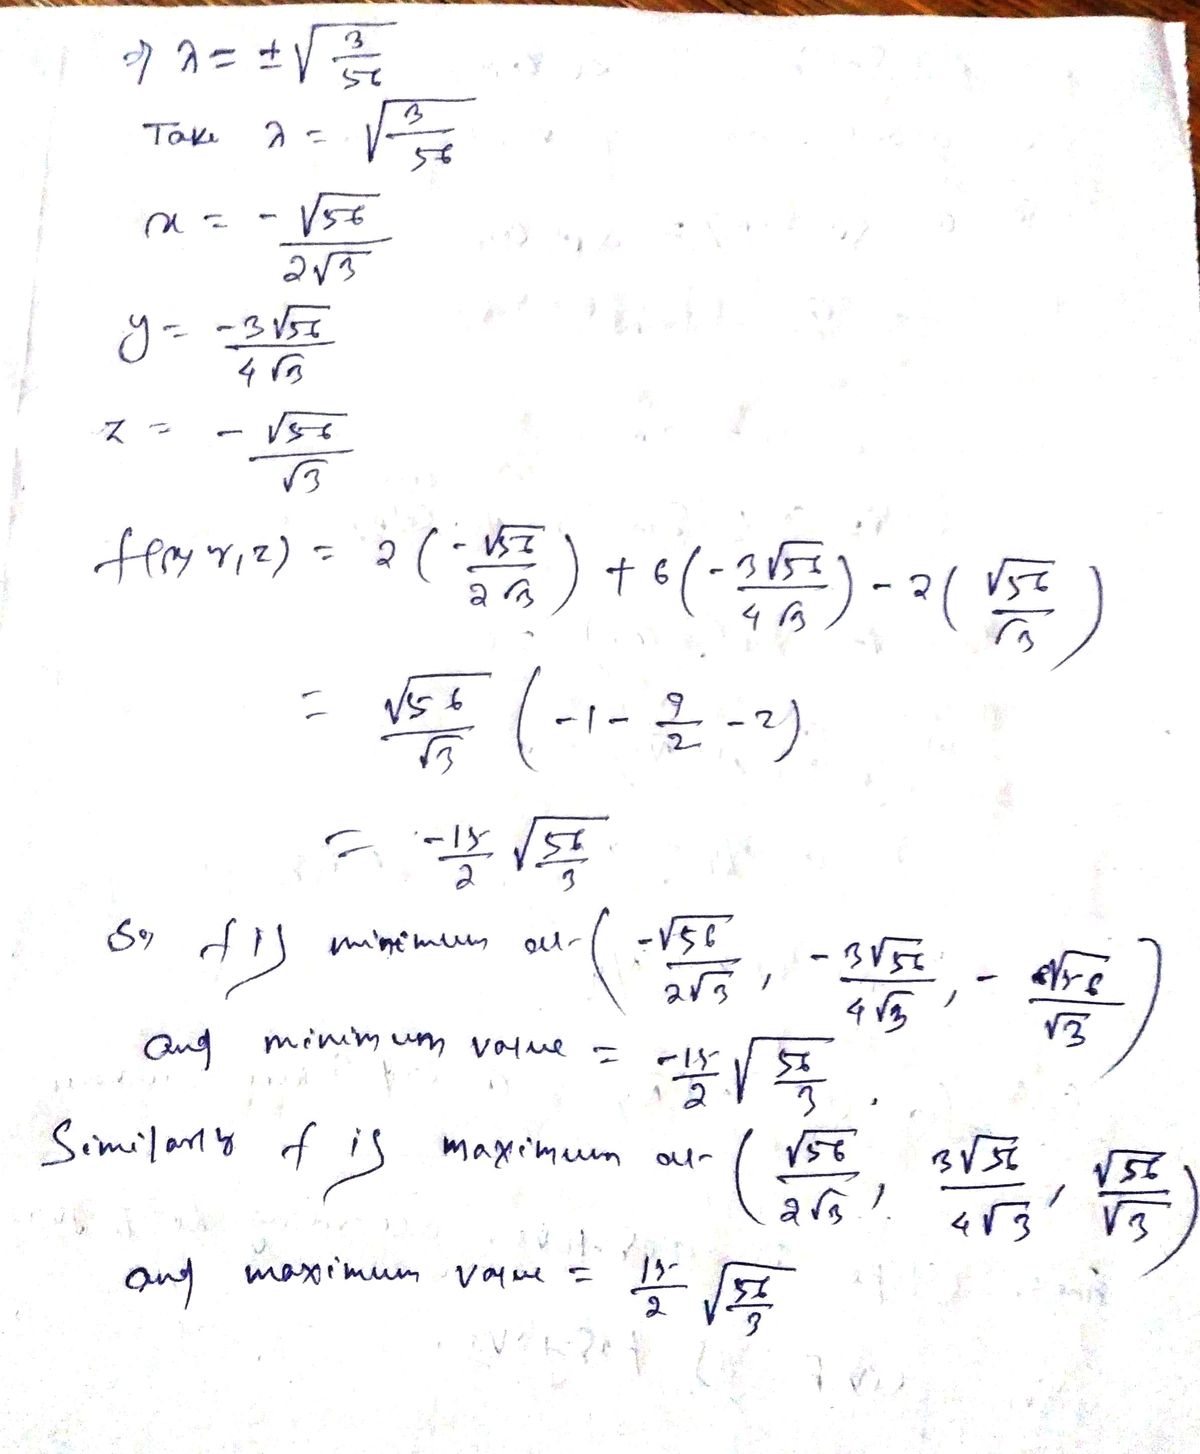 ⇒ λ = ±√(3/56)
Take λ = √(3/56)
x = - √56/2√3
y = -3√56/4√3
z = - √56/√3
f(x, y, z) = 2(-√56/2√3) + 6(-3√56/4√3) - 2(√56/√3)
= √56/√3 (-1 - 9/2 - 2)
= -15/2 √(56/3)
So f is minimum at (-√56/2√3, -3√56/4√3, -√56/√3)
and minimum value = -15/2 √(56/3).
Similarly f is maximum at (√56/2√3, 3√56/4√3, √56/√3)
and maximum value = 15/2 √(56/3)